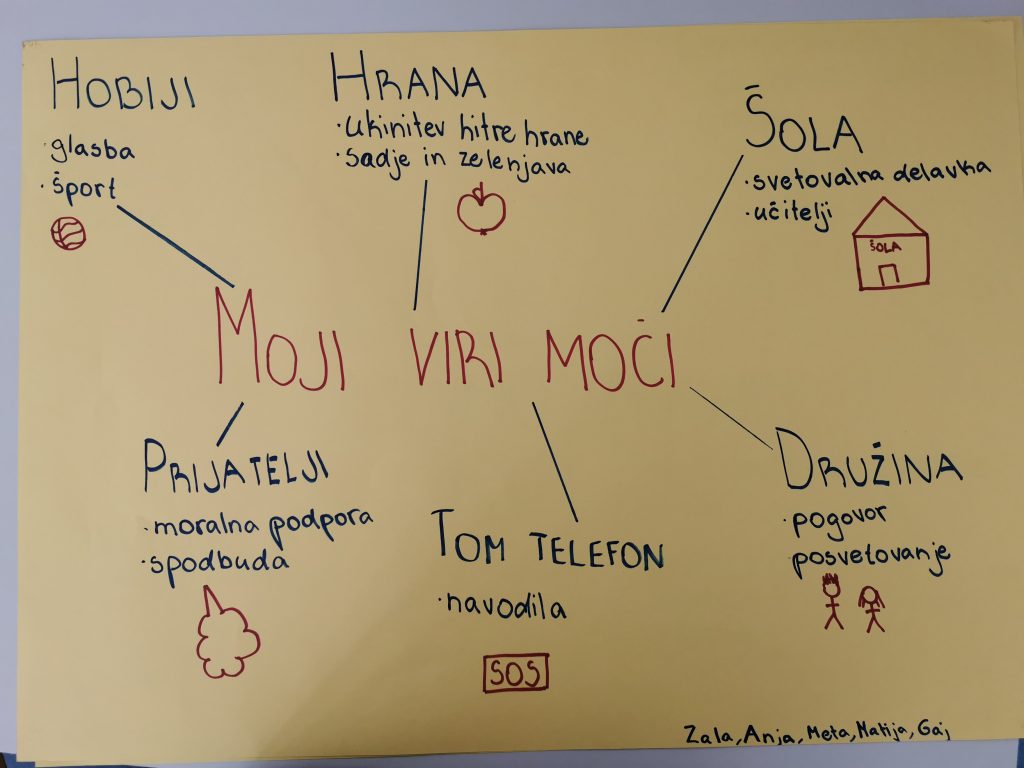 HOBIJI
·glasba
·šport
HRANA
·ukinitev hitre hrane
·sadje in zelenjava
ŠOLA
·svetovalna delavka
·učitelji
ŠOLA
MOJI VIRI MOČI
PRIJATELJI
·moralna podpora
·spodbuda
TOM TELEFON
·navodila
SOS
DRUŽINA
·pogovor
posvetovanje
Zala, Anja, Meta, Matija, Gaj